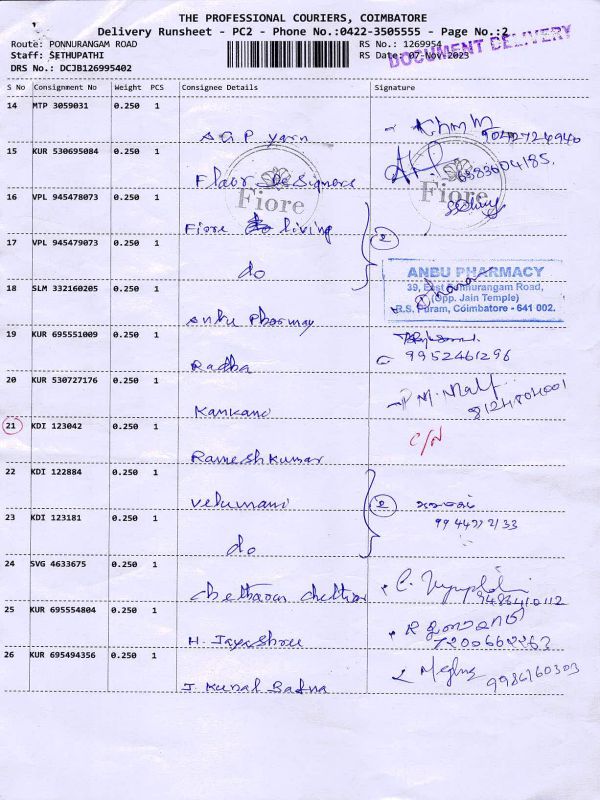 THE PROFESSIONAL COURIERS, COIMBATORE
Delivery Runsheet - PC2 - Phone No.:0422-3505555 - Page No.:2
Route: PONNURANGAM ROAD
Staff: SETHUPATHI
DRS No.: DCJB126995402
RS No.: 1269954
RS Date: 07-Nov-2023
DOCUMENT DELIVERY
S No Consignment No Weight PCS Consignee Details Signature
14 MTP 3059031 0.250 1
AGP yarn
15 KUR 530695084 0.250 1
Floor Designers
6383604185.
Fiore
Fiore
16 VPL 945478073 0.250 1
Fiore living
2
17 VPL 945479073 0.250 1
do
18 SLM 332160205 0.250 1
Anbu Pharmay
ANBU PHARMACY
39, East Ponnurangam Road,
(Opp. Jain Temple)
R.S. Puram, Coimbatore - 641 002.
Dhana
19 KUR 695551009 0.250 1
Radha
9952461296
20 KUR 530727176 0.250 1
Kamkand
P M.
21 KDI 123042 0.250 1
Rameshkumar
C/N
22 KDI 122884 0.250 1
Velumani
2
23 KDI 123181 0.250 1
do
24 SVG 4633675 0.250 1
9486410112
25 KUR 695554804 0.250 1
H. Jayashree
7200662263
26 KUR 695494356 0.250 1
J Kunal Bafna
9986160303